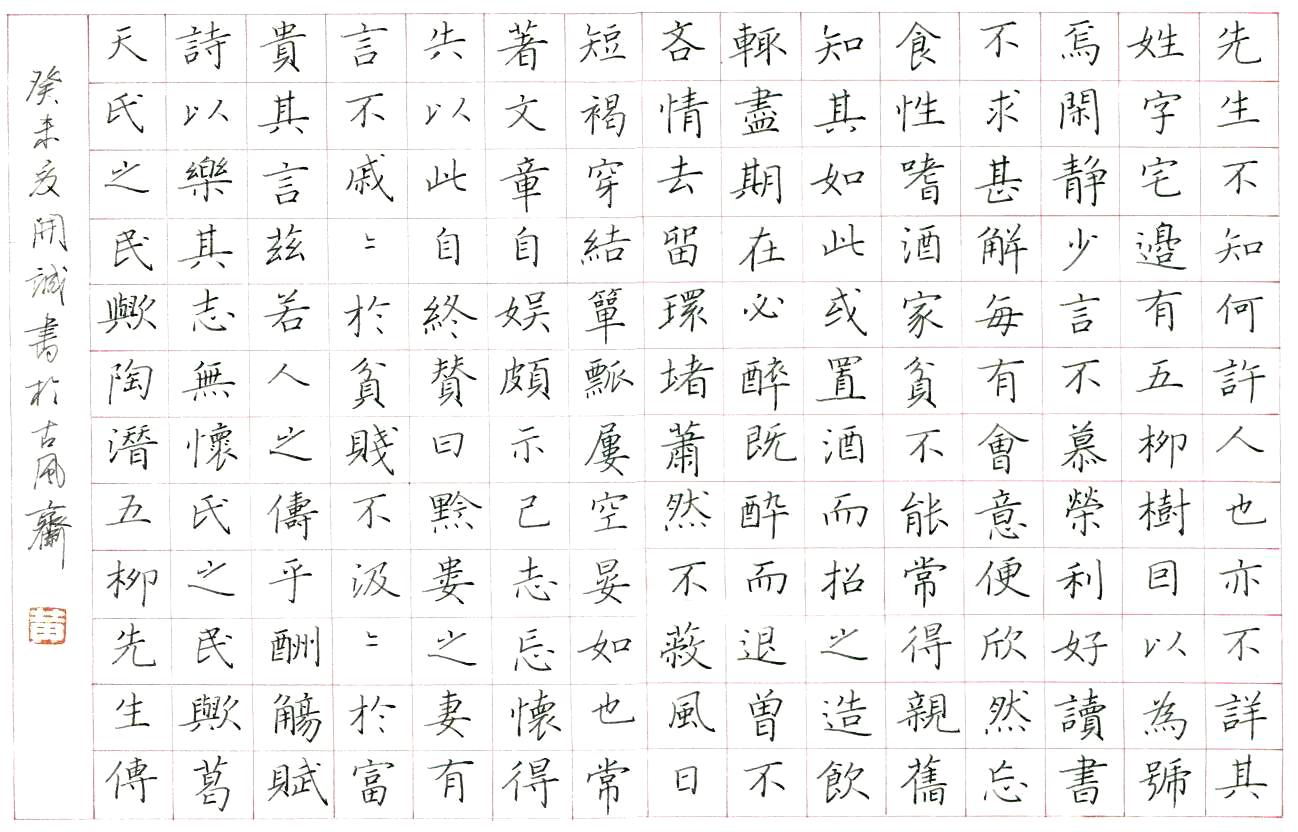 先生不知何許人也亦不詳其
姓字宅邉有五柳樹囙以為號
焉閑静少言不慕榮利好讀書
不求甚解每有會意便欣然忘
食性嗜酒家貧不能常得親舊
知其如此或置酒而招之造飲
輒盡期在必醉既醉而退曾不
吝情去留環堵蕭然不蔽風日
短褐穿結簞瓢屢空晏如也常
著文章自娱頗示己志忘懷得
失以此自終贊曰黔婁之妻有
言不戚〻於貧賤不汲〻於富
貴其言茲若人之儔乎酬觴賦
詩以樂其志無懷氏之民歟葛
天氏之民歟陶潛五柳先生傳
癸未夏開誠書於古風齋
黃